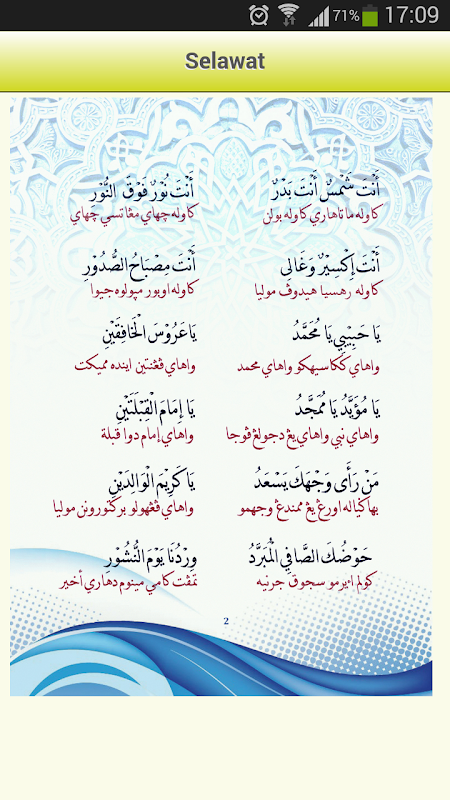 71% 17:09
Selawat
أَنْتَ شَمْسٌ أَنْتَ بَدْرٌ أَنْتَ نُورٌ فَوْقَ النُّوْرِ
كاوله ماتاهاري كاوله بولن كاوله چهاي مڠاتسي چهاي
أَنْتَ إِكْسِيْرٌ وَغَالِي أَنْتَ مِصْبَاحُ الصُّدُوْرِ
كاوله رهسيا هيدوڤ موليا كاوله اوبور مڽولوه جيوا
يَا حَبِيْبِي يَا مُحَمَّدُ يَا عَرُوْسَ الْخَافِقَيْنِ
واهاي ككاسيهكو واهاي محمد واهاي ڤڠنتين اينده مميكت
يَا مُؤَيَّدُ يَا مُمَجَّدُ يَا إِمَامَ الْقِبْلَتَيْنِ
واهاي نبي واهاي يڠ دجولڠ ڤوجا واهاي إمام دوا قبلة
مَنْ رَأَى وَجْهَكَ يَسْعَدُ يَا كَرِيْمَ الْوَالِدَيْنِ
بهاݢياله اورڠ يڠ ممندڠ وجهمو واهاي ڤڠهولو بركتورونن موليا
حَوْضُكَ الصَّافِي الْمُبَرَّدُ وِرْدُنَا يَوْمَ النُّشُوْرِ
كولم ايرمو سجوق جرنيه تمڤت كامي مينوم دهاري أخير
2